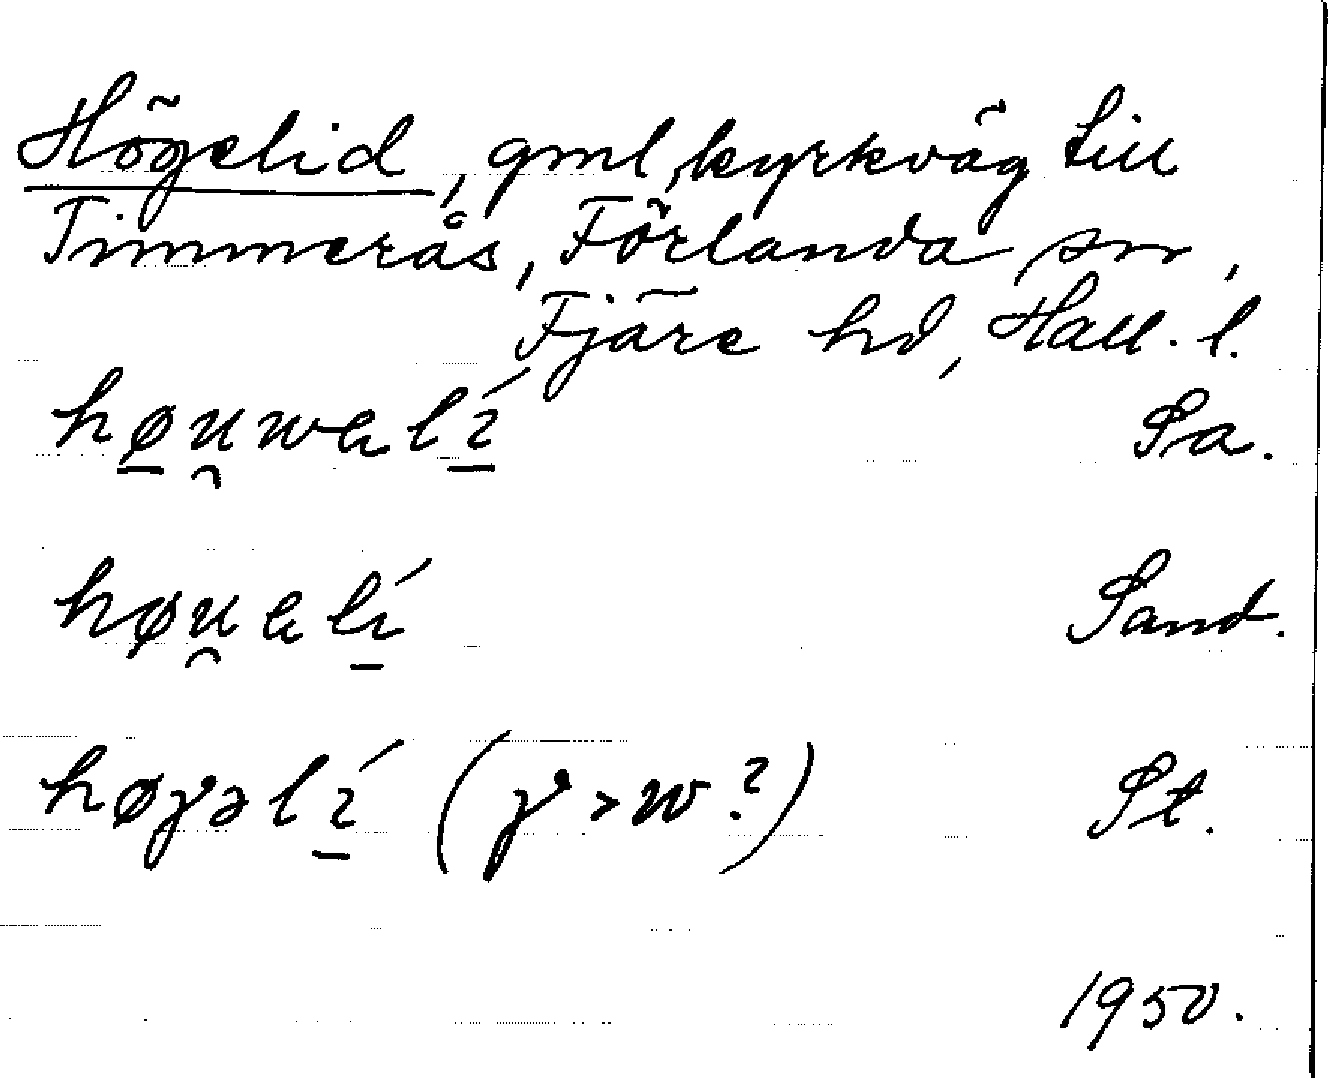 Högelid, gml kyrkväg till
Timmerås, Förlanda sn,
Fjäre hd, Hall. l.
hø̠u̯wɐlí̠ Sa.
høu̯ɐlí̠ Sand.
høɣəlí̠ (ɣ > w?) St.
1950.